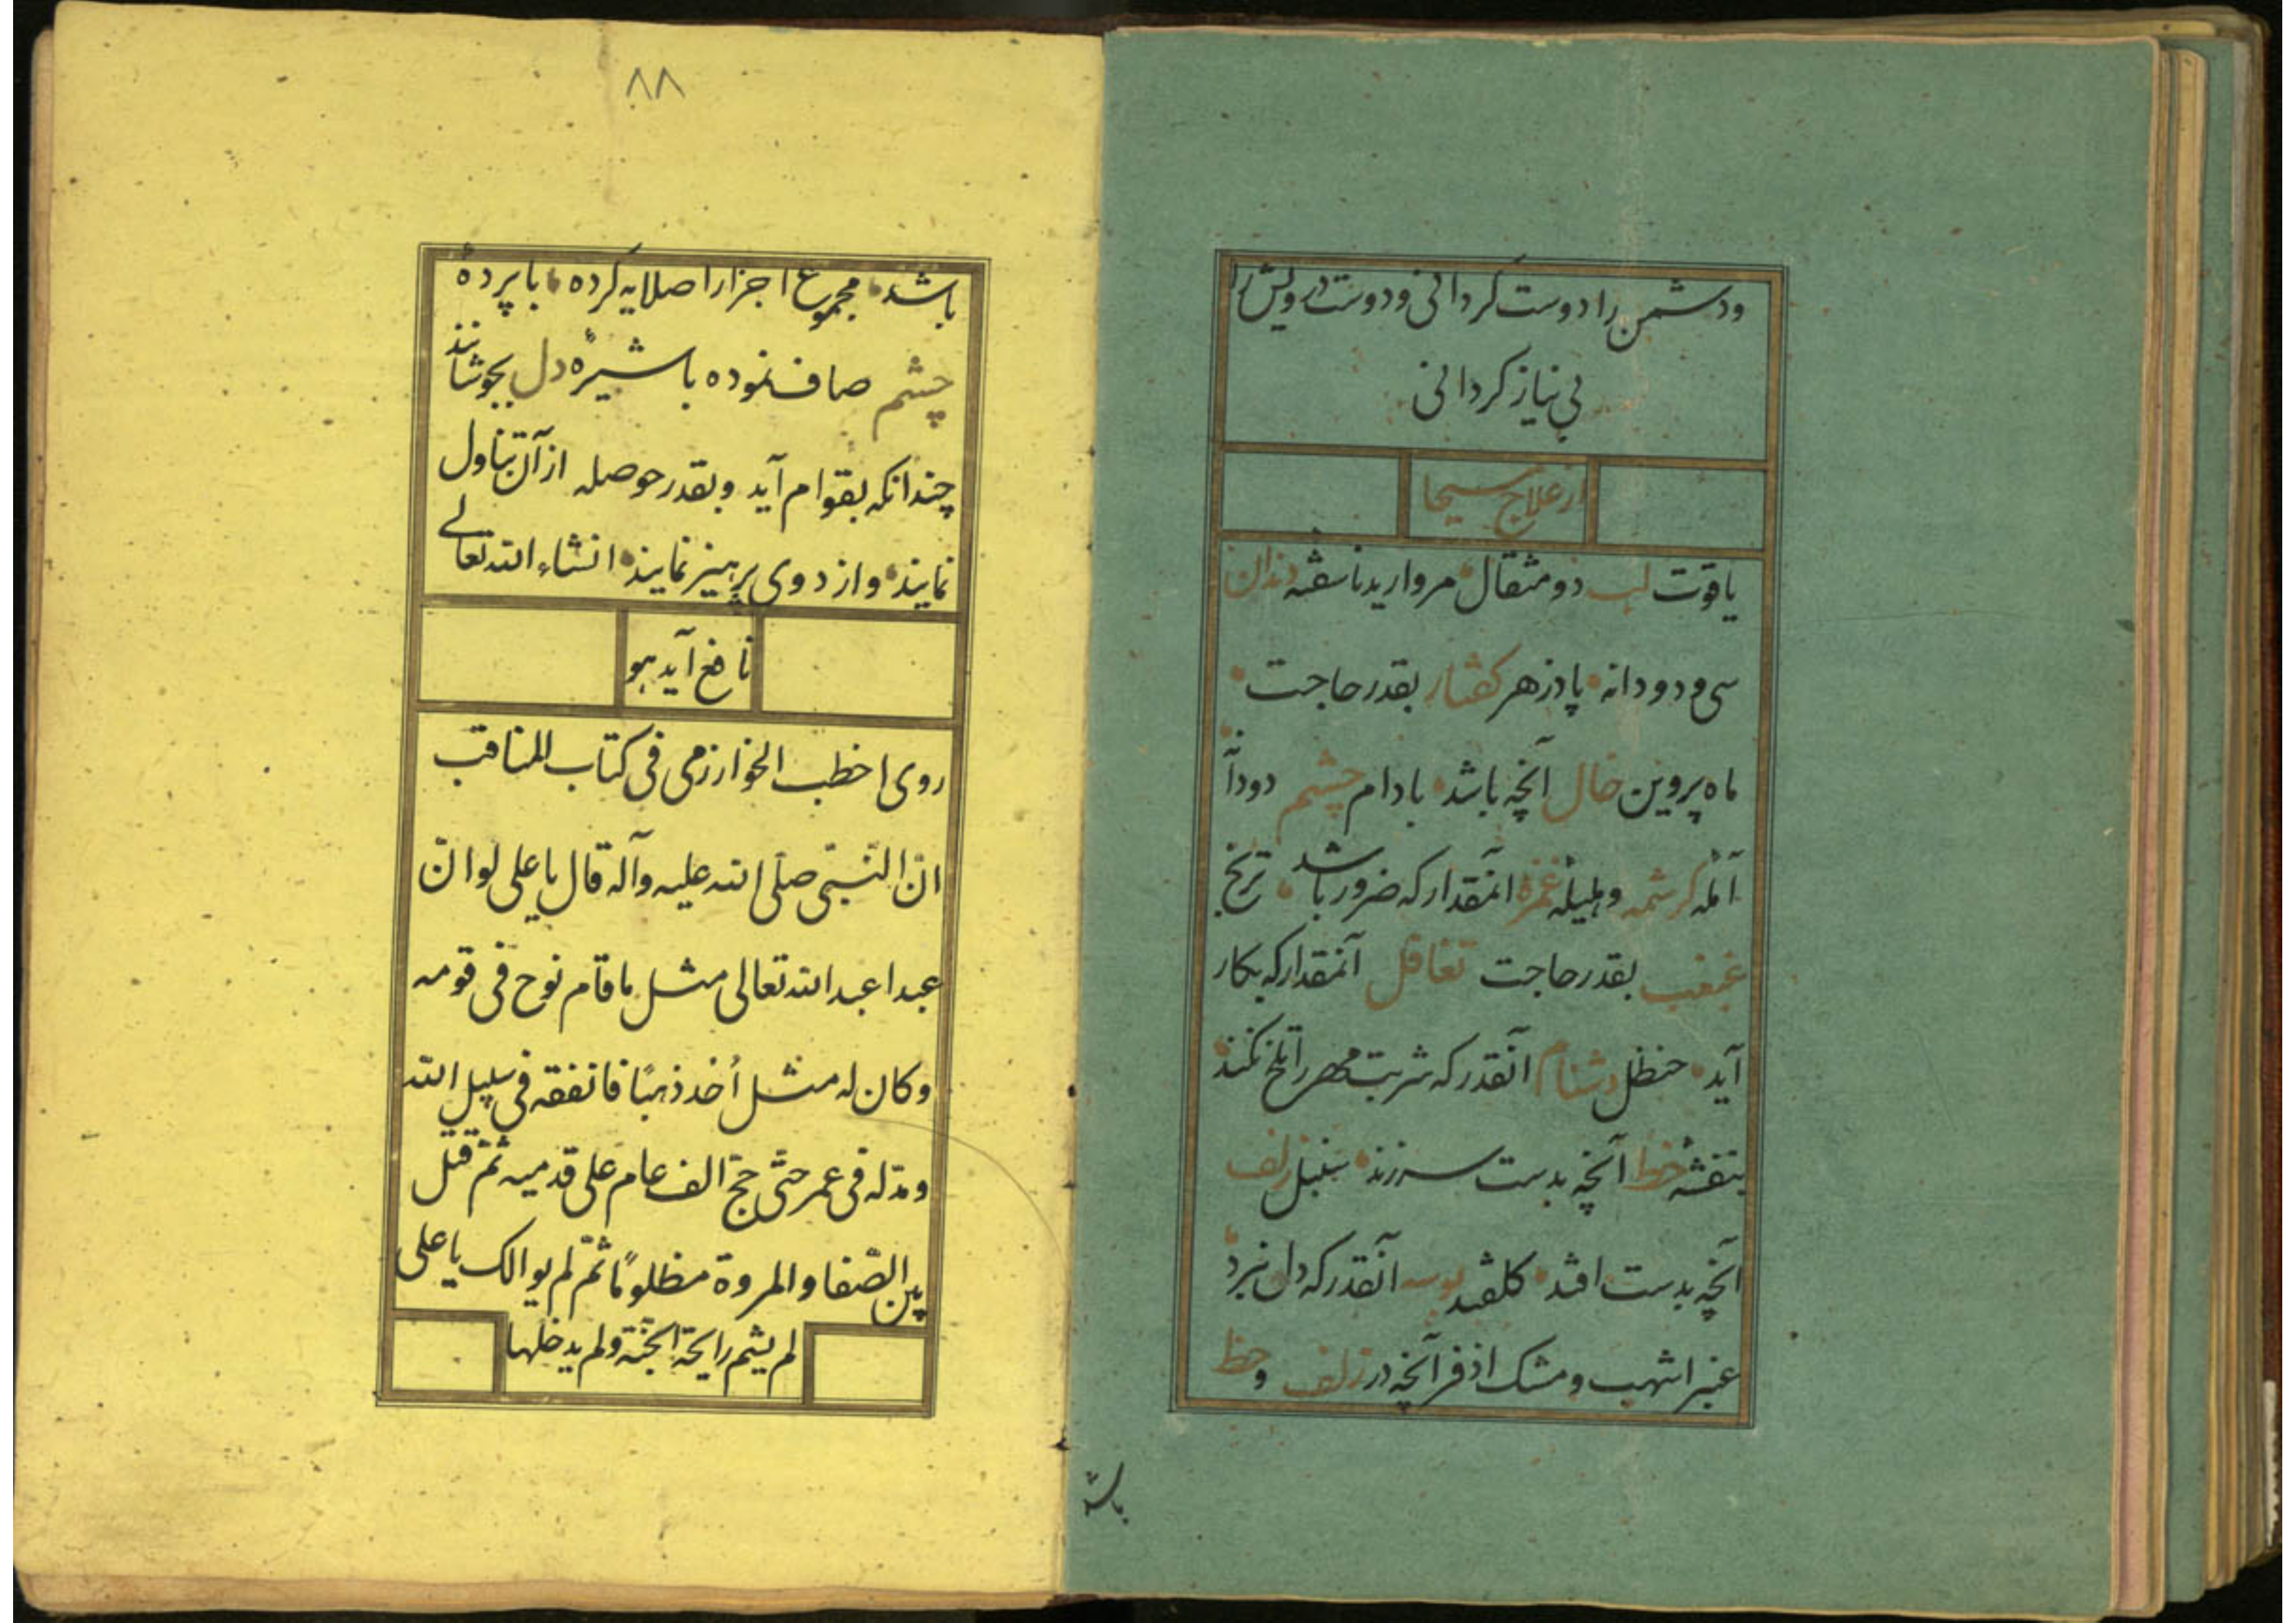 ودشمن را دوست گردانی ودوست درویش را
بی نیاز گردانی
از علاج مسیحا
یاقوت لب دو مثقال مروارید ناسفته دندان
سی ودو دانه پادزهر گفتار بقدر حاجت
ماه پروین خال آنچه باشد بادام چشم دودا
آمله کرشمه وهلیله غمزه آنمقدار که ضرور باشد ترنج
غبغب بقدر حاجت تغافل آنمقدار که بکار
آید حنظل دشنام آنقدر که شربت مهر را تلخ نکند
بنفشه خط آنچه بدست سرزند سنبل زلف
آنچه بدست افتد گلقند بوسه آنقدر که دل نبرد
عنبر اشهب ومشک اذفر آنچه در زلف و خط
باشد
۸۸
باشد مجموع اجزارا صلایه کرده با پرده
چشم صاف نموده با شیره دل بجوشانند
چندانکه بقوام آید وبقدر حوصله از آن تناول
نمایند واز دوی پرهیز نمایند انشاء الله تعالی
نافع آید هو
روی اخطب الخوارزمی فی کتاب المناقب
انّ النّبیّ صلّی الله علیه وآله قال یا علی لو انّ
عبدا عبد الله تعالی مثل ما قام نوح فی قومه
وکان له مثل أحد ذهبًا فانفقه فی سبیل الله
ومدّ له فی عمر حتّی حجّ الف عام علی قدمیه ثمّ قتل
بین الصّفا والمروة مظلومًا ثمّ لم یوالک یا علی
لم یشم رایحة الجنّة ولم یدخلها